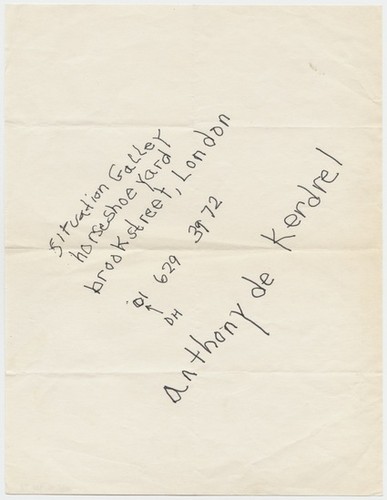 situation Galley
horseshoe Yard
brookstreet, London
01 629 3972
OH
anthony de Kerdrel